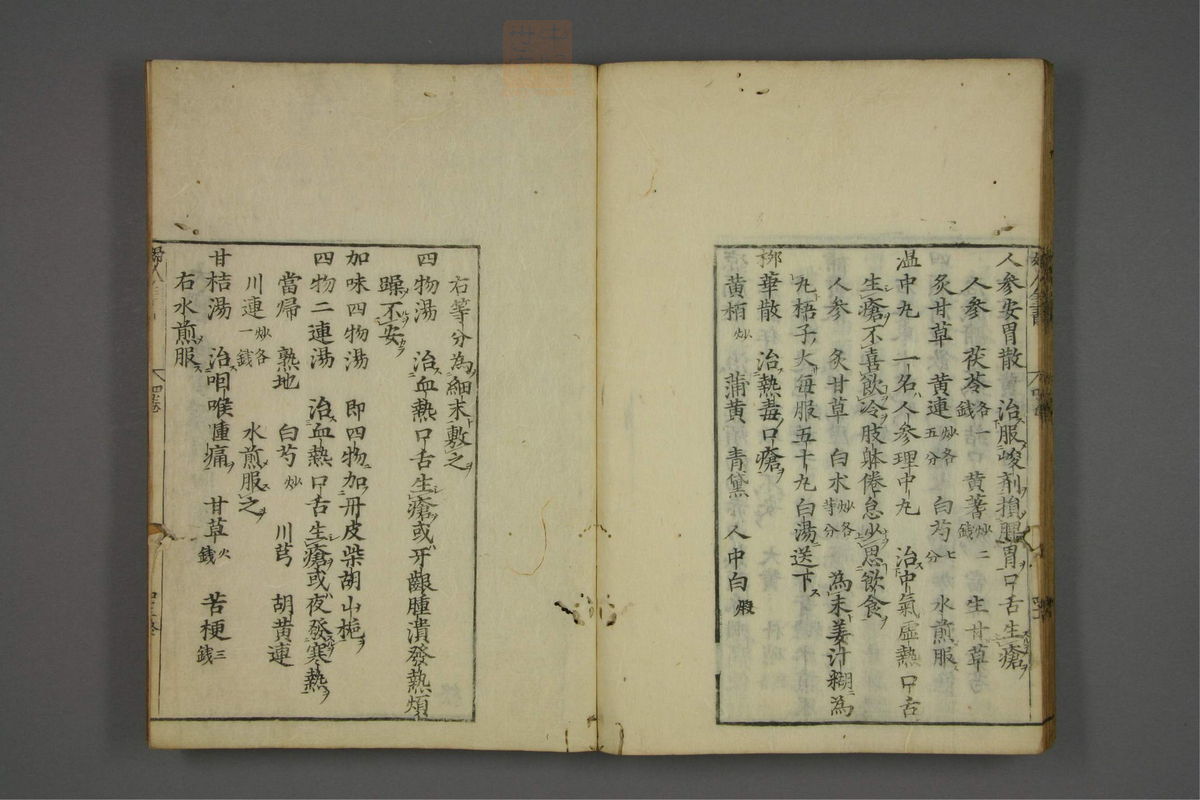 人參安胃散　治服峻劑損脾胃口舌生瘡
人參　茯苓各一錢　黃蓍炒二錢　生甘草
炙甘草　黃連炒各五分　白芍七分　水煎服
温中丸　一名人參理中丸　治中氣虛熱口舌
生瘡不喜飲冷肢躰倦怠少思飲食
人參　炙甘草　白朮炒各等分　為末姜汁糊為
丸梧子大每服五十丸白湯送下
柳華散　治熱毒口瘡
黃栢炒　蒲黃　青黛　人中白煅
右等分為細末敷之
四物湯　治血熱口舌生瘡或牙齦腫潰發熱煩
躁不安
加味四物湯　即四物加丹皮柴胡山梔
四物二連湯　治血熱口舌生瘡或夜發寒熱
當帰　熟地　白芍炒　川芎　胡黃連
川連炒各一錢　水煎服之
甘桔湯　治咽喉腫痛　甘草火錢　苦梗三錢
右水煎服